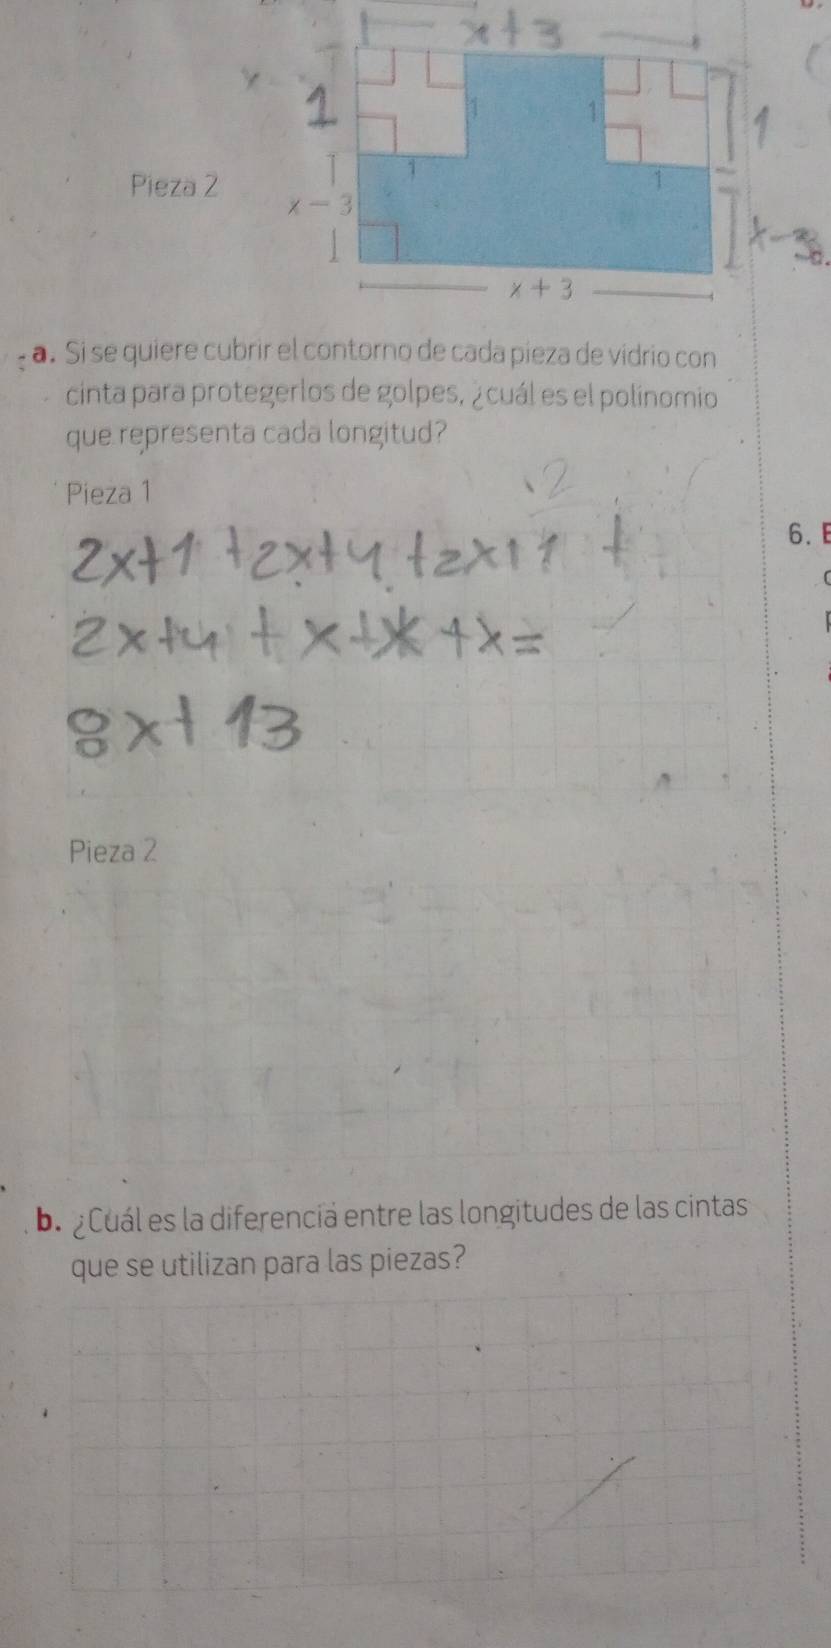 x + 3
1
1
1
1
Pieza 2
1
1
x - 3
x - 3
x + 3
a. Si se quiere cubrir el contorno de cada pieza de vidrio con
cinta para protegerlos de golpes, ¿cuál es el polinomio
que representa cada longitud?
Pieza 1
6. E
2x+1 +2x+4 +2x+1 +
2x+4 + x + x + x =
8x+ 13
Pieza 2
b. ¿Cuál es la diferencia entre las longitudes de las cintas
que se utilizan para las piezas?